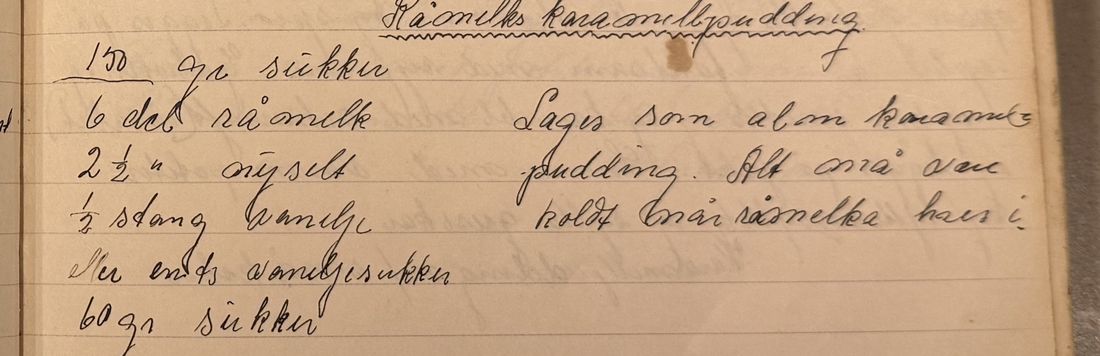 Råmelks karamellpudding
150 gr sukker
6 del råmelk
2 1/2 " nysilt
1/2 stang vanelje
eller en ts vaneljesukker
60 gr sukker
Lages som alm karamel=
pudding. Alt må være
koldt når råmelka haes i.